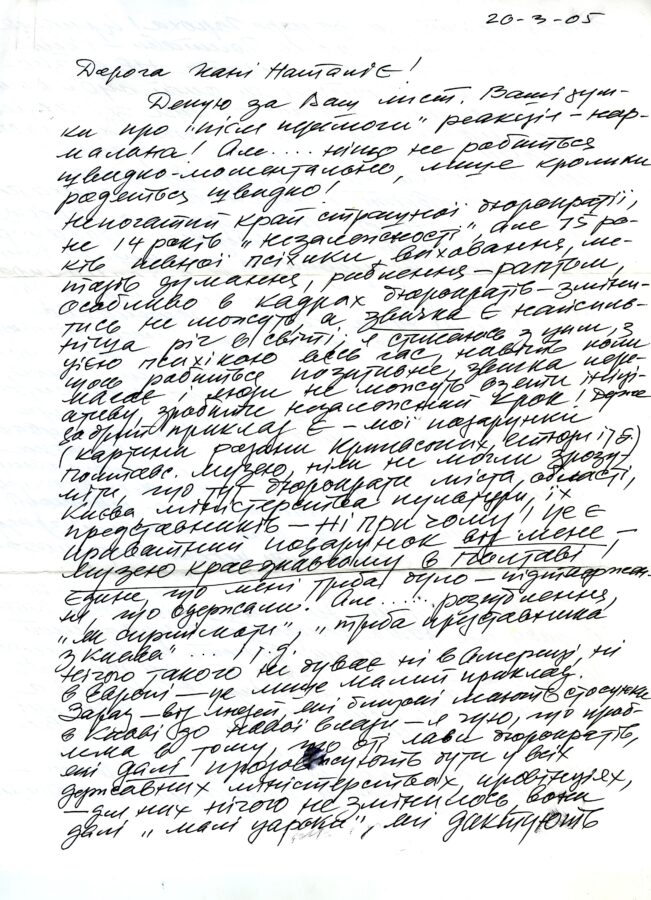 20-3-05
Дорога Пані Наталіє!
Дякую за Ваш лист. Ваші дум-
ки про "після перемоги" реакції - нор-
мальна! Але .... ніщо не робиться
швидко-моментально, лише кролики
родяться швидко!
Непочатий край страшної бюрократії,
не 14 років "незалежності", але 75 ро-
ків певної психіки, виховання, ме-
тодів думання, роблення - раптом,
особливо в кадрах бюрократів - зміни-
тись не можуть, а звичка є найсиль-
ніша річ в світі; я стикаюсь з цим, з
цією психікою весь час, навіть коли
щось робиться позитивне, звичка пере-
магає і люди не можуть взяти ініці-
ативу, зробити незалежний крок! Дуже
добрий приклад є - мої подарунки
(картини, Кричевських,
Полтавс. музею, ніяк не могли зрозу-
міти, що тут бюрократи міста, області,
Києва міністерства культури, їх
представників - ні при чому! Це є
приватний подарунок від мене -
музею краєзнавчому в Полтаві!
Єдине, що мені треба було - підтверджен-
ня, що одержали. Але ......
"як сприймати", "треба представника
з Києва" ... ! ?
Нічого такого не буває ні в Америці, ні
в Європі - це лише малий приклад.
Зараз - від людей, які близькі мають стосунки
в Києві до нової влади - я чую, що проб-
лема в тому, що оті лави бюрократів,
які далі продовжують бути у всіх
державних міністерствах, провінціях,
- для них нічого не змінилось, вони
далі "малі царьки", які диктують